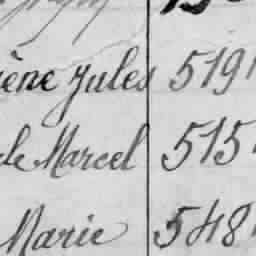 ène Jules 5191
de Marcel 515
Marie 548